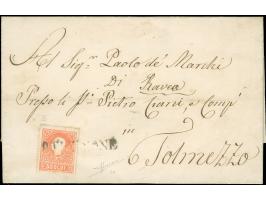 Al Sig.r Paolo de' Marchi
Di Raveo
Presso li S.ri Pietro Ciani, e Comp.
in
Tolmezzo